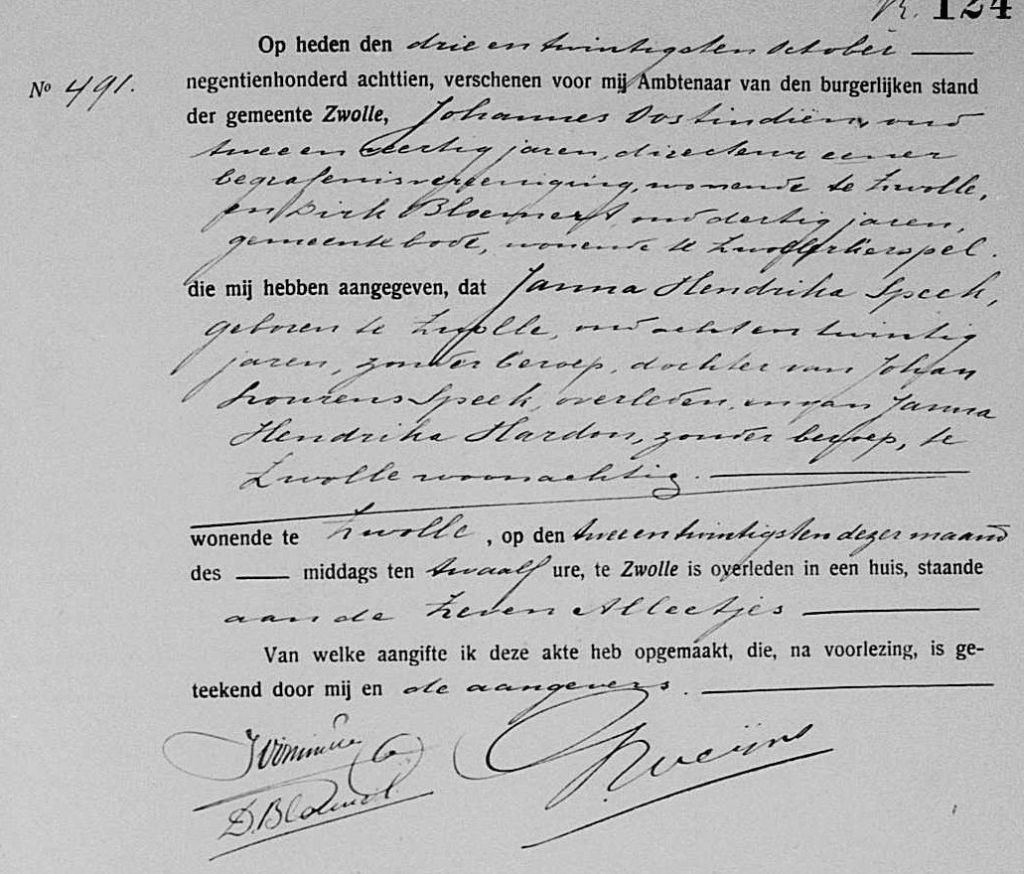 124
Op heden den drie en twintigsten October
No 491.
negentienhonderd achttien, verschenen voor mij Ambtenaar van den burgerlijken stand
der gemeente Zwolle, Johannes Oostindiën, oud
twee en veertig jaren, directeur eener
begrafenisvereeniging, wonende te Zwolle,
en Dirk Bloemert, oud dertig jaren,
gemeentebode, wonende te Zwollerkerspel.
die mij hebben aangegeven, dat Janna Hendrika Speek,
geboren te Zwolle, oud acht en twintig
jaren, zonder beroep, dochter van Johan
Lourens Speek, overleden, en van Janna
Hendrika Hardon, zonder beroep, te
Zwolle woonachtig.
wonende te Zwolle, op den twee en twintigsten dezer maand
des middags ten twaalf ure, te Zwolle is overleden in een huis, staande
aan de Zeven Alleetjes
Van welke aangifte ik deze akte heb opgemaakt, die, na voorlezing, is ge-
teekend door mij en de aangevers.
D. Bloemert